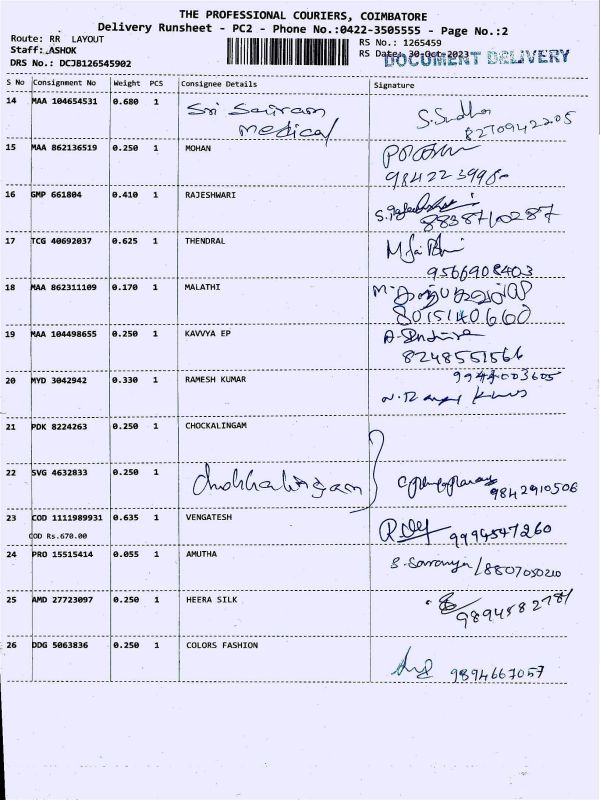 THE PROFESSIONAL COURIERS, COIMBATORE
Delivery Runsheet - PC2 - Phone No.:0422-3505555 - Page No.:2
Route: RR LAYOUT
RS No.: 1265459
Staff: ASHOK
RS Date: 30-Oct-2023
DOCUMENT DELIVERY
DRS No.: DCJB126545902
S No Consignment No Weight PCS Consignee Details Signature
14 MAA 104654531 0.680 1 Sri Sairam
Medical
S. Sudha
8270942205
15 MAA 862136519 0.250 1 MOHAN
16 GMP 661804 0.410 1 RAJESHWARI
8838710287
17 TCG 40692037 0.625 1 THENDRAL
9566908403
18 MAA 862311109 0.170 1 MALATHI
8015140660
19 MAA 104498655 0.250 1 KAVVYA EP
8248551566
20 MYD 3042942 0.330 1 RAMESH KUMAR
9944003605
21 PDK 8224263 0.250 1 CHOCKALINGAM
22 SVG 4632833 0.250 1 Chokkalingam
9842910506
23 COD 1111989931 0.635 1 VENGATESH
COD Rs.670.00
9994547260
24 PRO 15515414 0.055 1 AMUTHA
S. Saranya/8807050210
25 AMD 27723097 0.250 1 HEERA SILK
9894582781
26 DDG 5063836 0.250 1 COLORS FASHION
9894667057